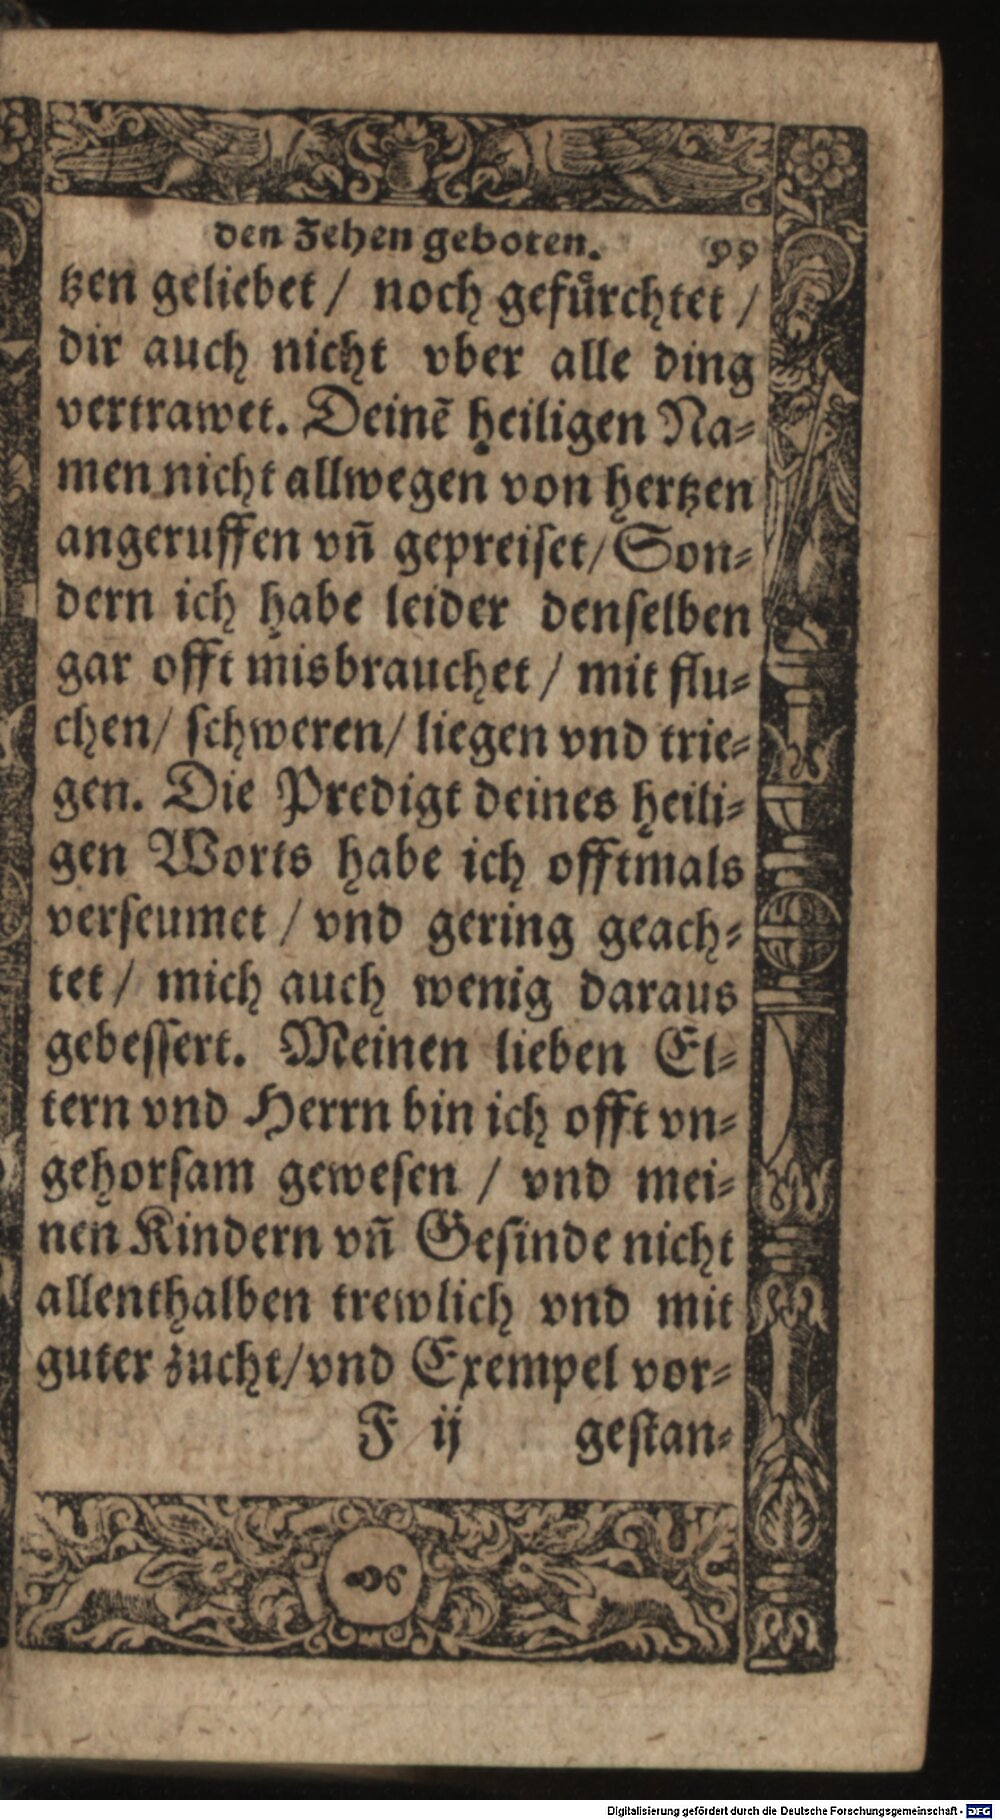 den Zehen geboten. 99
tzen geliebet / noch gefuͤrchtet /
dir auch nicht vber alle ding
vertrawet. Deinẽ heiligen Na⸗
men nicht allwegen von hertzen
angeruffen vñ gepreiſet / Son⸗
dern ich habe leider denſelben
gar offt misbrauchet / mit flu⸗
chen / ſchweren / liegen vnd trie⸗
gen. Die Predigt deines heili⸗
gen Worts habe ich offtmals
verſeumet / vnd gering geach⸗
tet / mich auch wenig daraus
gebeſſert. Meinen lieben El⸗
tern vnd Herrn bin ich offt vn⸗
gehorſam geweſen / vnd mei⸗
nen Kindern vñ Geſinde nicht
allenthalben trewlich vnd mit
guter zucht / vnd Exempel vor⸗
F ij geſtan⸗
Digitalisierung gefördert durch die Deutsche Forschungsgemeinschaft - DFG